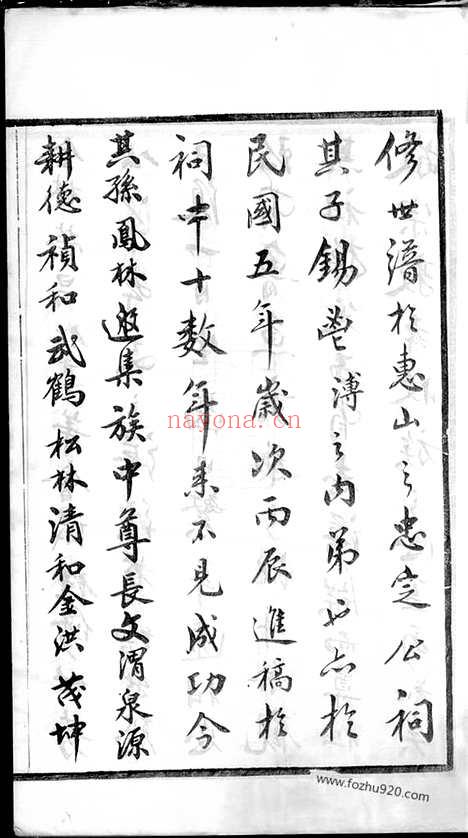 修世譜於惠山之忠定公祠
其子錫鬯溥之內弟也亦於
民國五年歲次丙辰進稿於
祠中十數年來不見成功今
其孫鳳林邀集族中尊長文渭泉源
耕德禎和武鶴松林清和金洪茂坤
nayona.cn
www.fozhu920.com